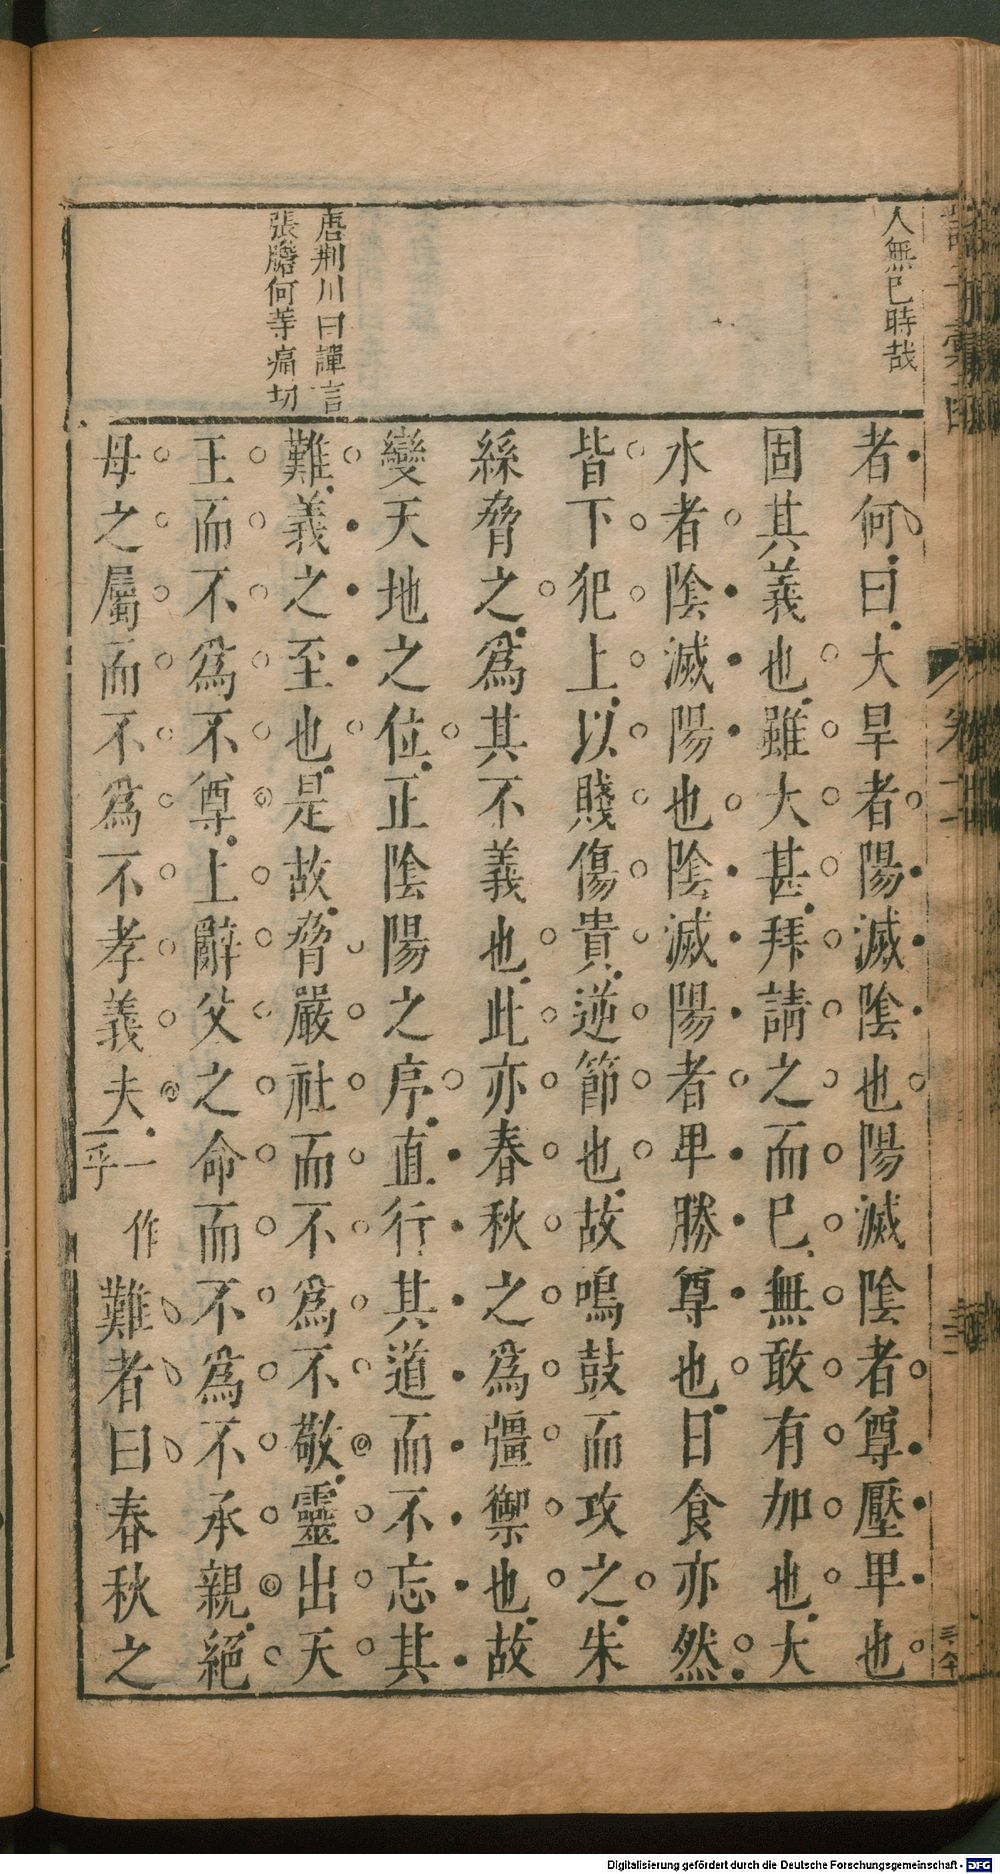 人無已時哉
唐荆川曰譚言
張膽何等痛切
者何曰大旱者陽滅陰也陽滅陰者尊壓卑也
固其義也雖大甚拜請之而已無敢有加也大
水者陰滅陽也陰滅陽者卑勝尊也日食亦然
皆下犯上以賤傷貴逆節也故鳴鼓而攻之朱
絲脅之爲其不義也此亦春秋之爲彊禦也故
變天地之位正陰陽之序直行其道而不忘其
難義之至也是故脅嚴社而不爲不敬靈出天
王而不爲不尊上辭父之命而不爲不承親絕
母之屬而不爲不孝義夫一作乎難者曰春秋之
卷十一
Digitalisierung gefördert durch die Deutsche Forschungsgemeinschaft - DFG